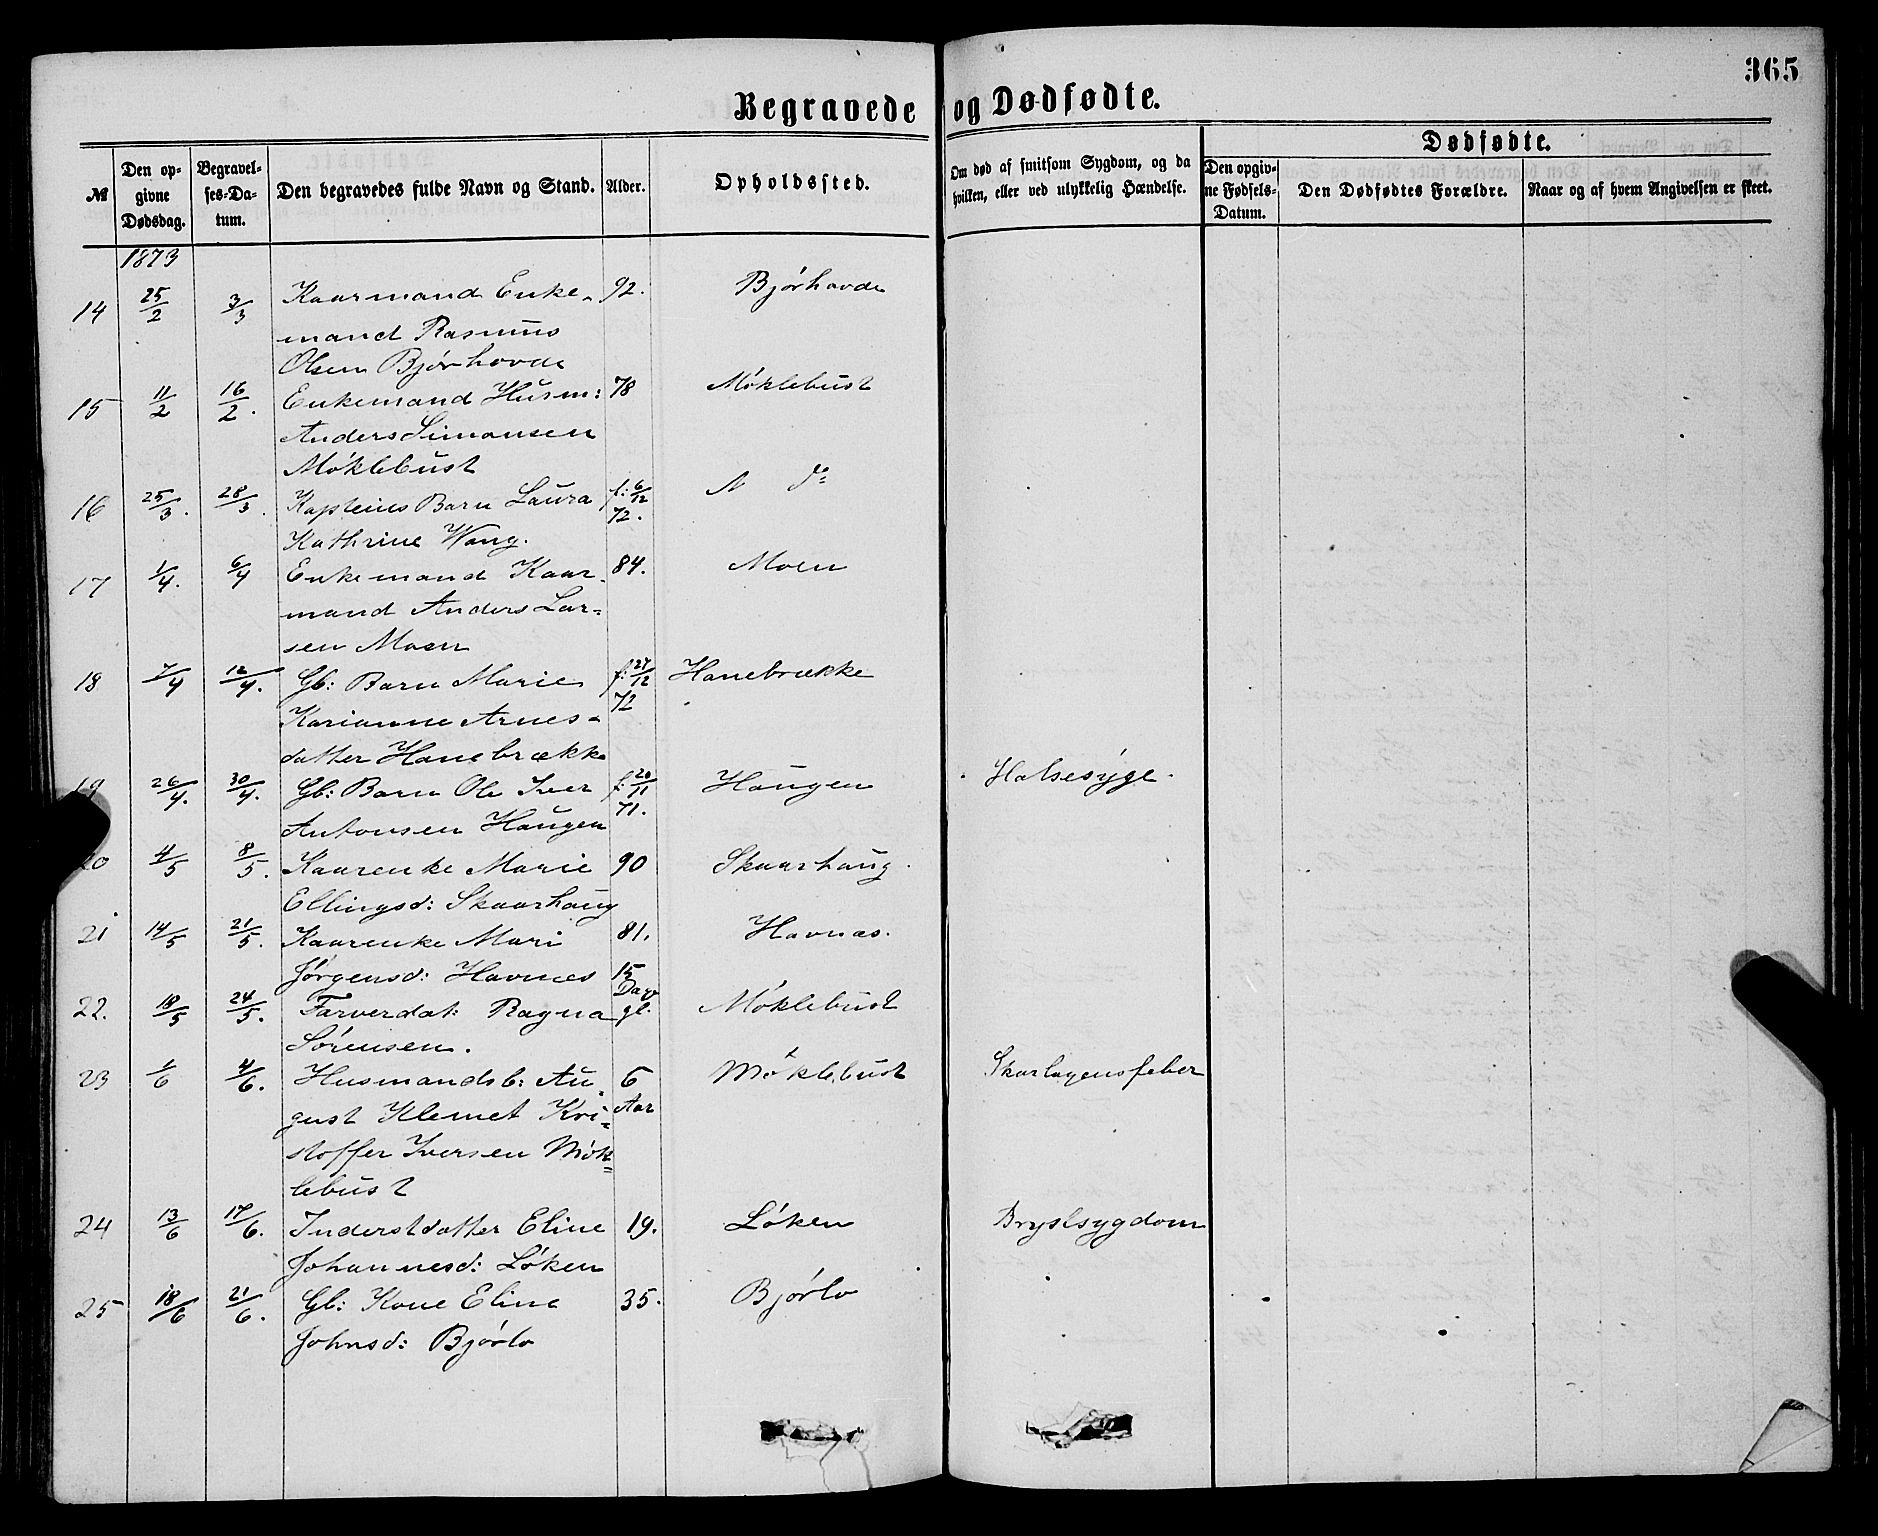 365
Begravede og Dødfødte.
№
Den opgivne Dødsdag.
Begravelses-Datum.
Den begravedes fulde Navn og Stand.
Alder.
Opholdssted.
Om død af smitsom Sygdom, og da hvilken, eller ved ulykkelig Hændelse.
Dødfødte.
Den opgivne Fødsels-Datum.
Den Dødfødtes Forældre.
Naar og af hvem Angivelsen er skeet.
1873
14 25/2 3/3 Kaarmand Enke- 92. Bjørhovde
mand Rasmus
Olsen Bjørhovde
15 11/2 16/2. Enkemand Husm: 78 Møklebust
Anders Simonsen
Møklebust
16 25/3. 28/3. Kapteins Barn Laura f: 6/12 72. do
Kathrine Wang.
17 1/4. 6/4 Enkemand Kaar- 84. Moen
mand Anders Lar-
sen Moen
18 7/4 12/4. Gb: Barn Marie f: 27/12 72 Hanebrække
Karianne Arnes-
datter Hanebrække
19 26/4. 30/4. Gb: Barn Ole Iver f: 20/11 71. Haugen Halsesyge.
Antonsen Haugen
20 4/5 8/5. Kaarenke Marie 90 Skaarhaug.
Ellingsd: Skaarhaug
21 14/5 21/5. Kaarenke Mari 81. Havnæs.
Jørgensd: Havnes
22. 18/5 24/5. Farverdat: Ragna 15 Dage gl. Møklebust
Sørensen.
23 1/6 4/6. Husmandsb: Au- 6 Aar Møklebust Skarlagensfeber
gust Klemet Kri-
stoffer Iversen Møk-
lebust
24 13/6 17/6. Inderstdatter Eline 19. Løken Brystsygdom
Johannesd: Løken
25 18/6 21/6. Gb: Kone Eline 35. Bjørlo
Johnsd: Bjørlo